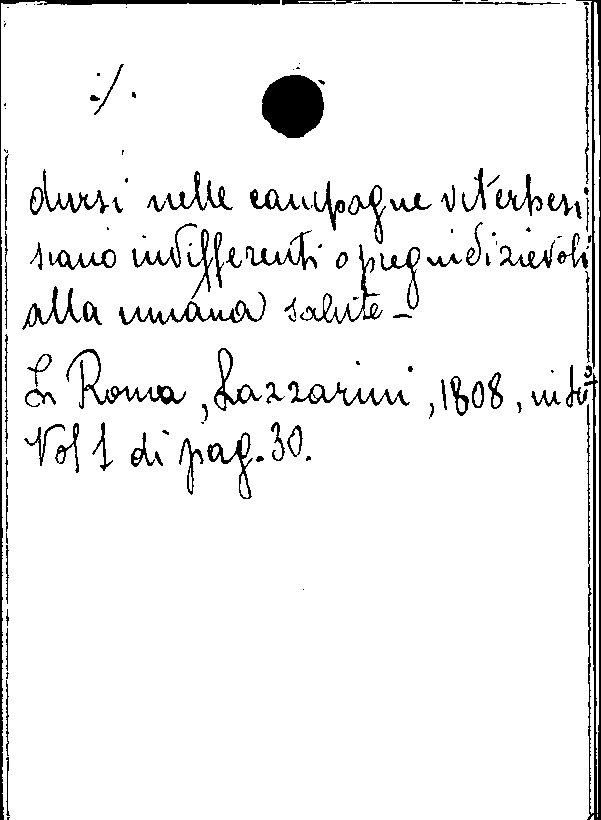 ./.
dursi nelle campagne viterbesi
siano indifferenti o pregiudizievoli
alla umana salute -
In Roma, Lazzarini, 1808, in 8°
Vol 1 di pag. 30.